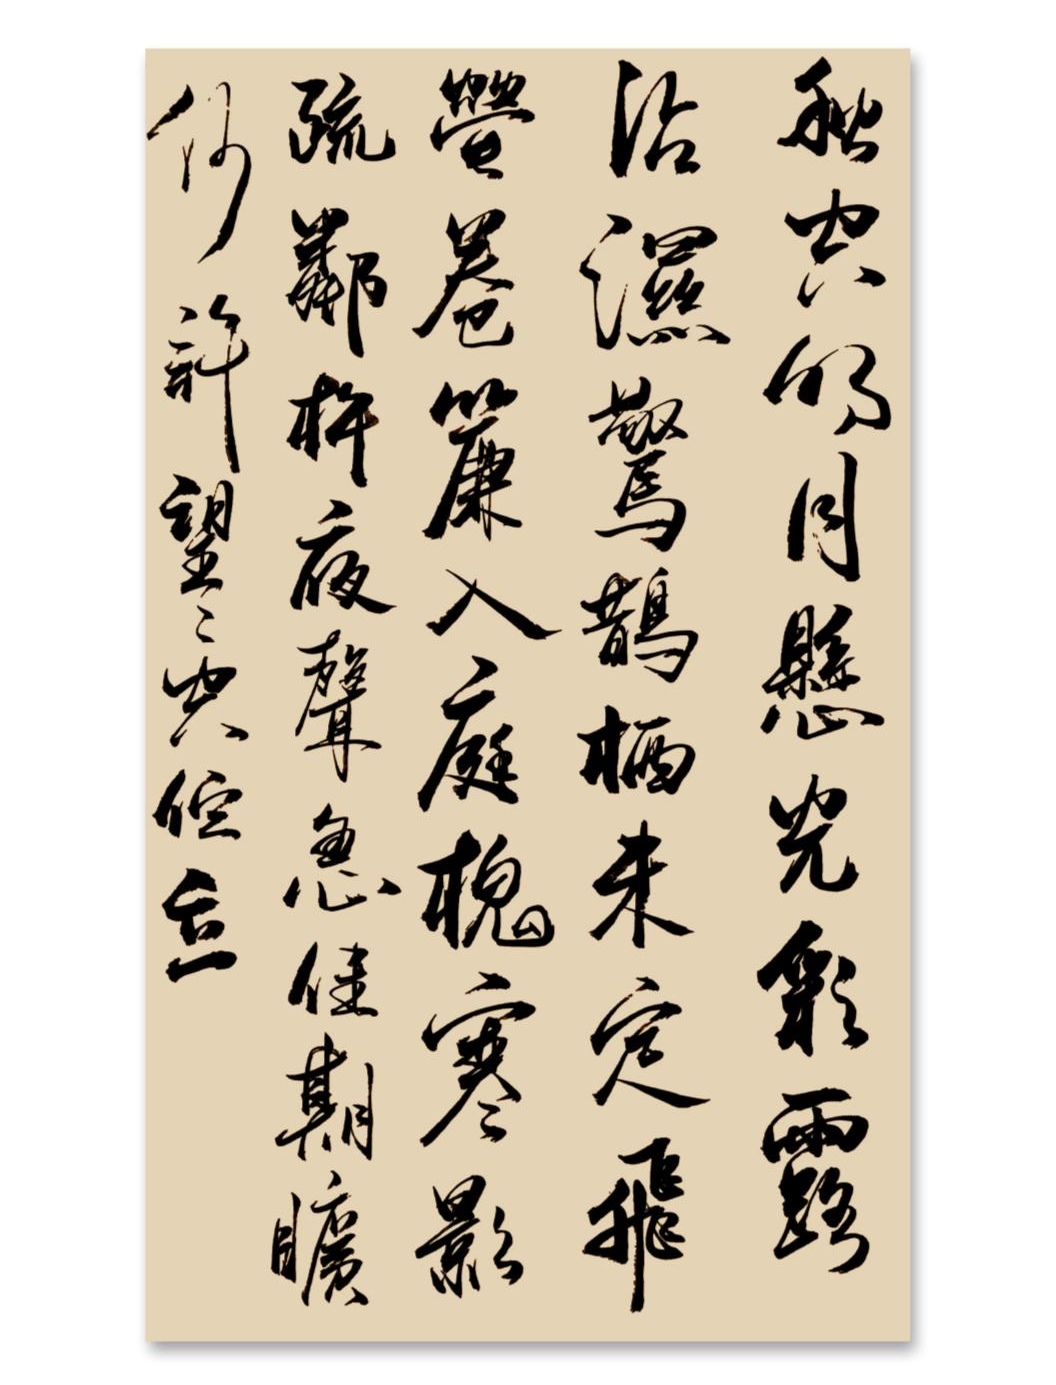 秋空明月懸光彩露
沾濕驚鵲栖未定飛
螢卷簾入庭槐寒影
疏鄰杵夜聲急佳期曠
何許望〻空佇立